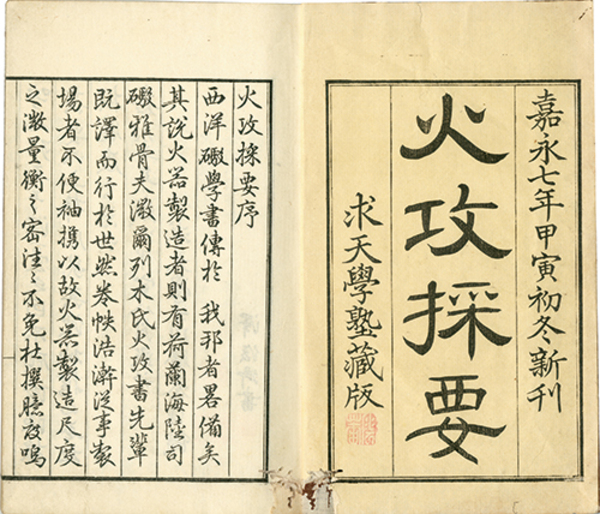 嘉永七年甲寅初冬新刊
火攻採要
求天學塾藏版
火攻採要序
西洋礮學書傳於 我邦者畧備矣
其說火器製造者則有荷蘭海陸司
礮雅骨夫溦爾列木氏火攻書先輩
既譯而行於世然卷帙浩瀚從事製
場者不便袖携以故火器製造尺度
之溦量衡之密往〻不免杜撰臆度嗚